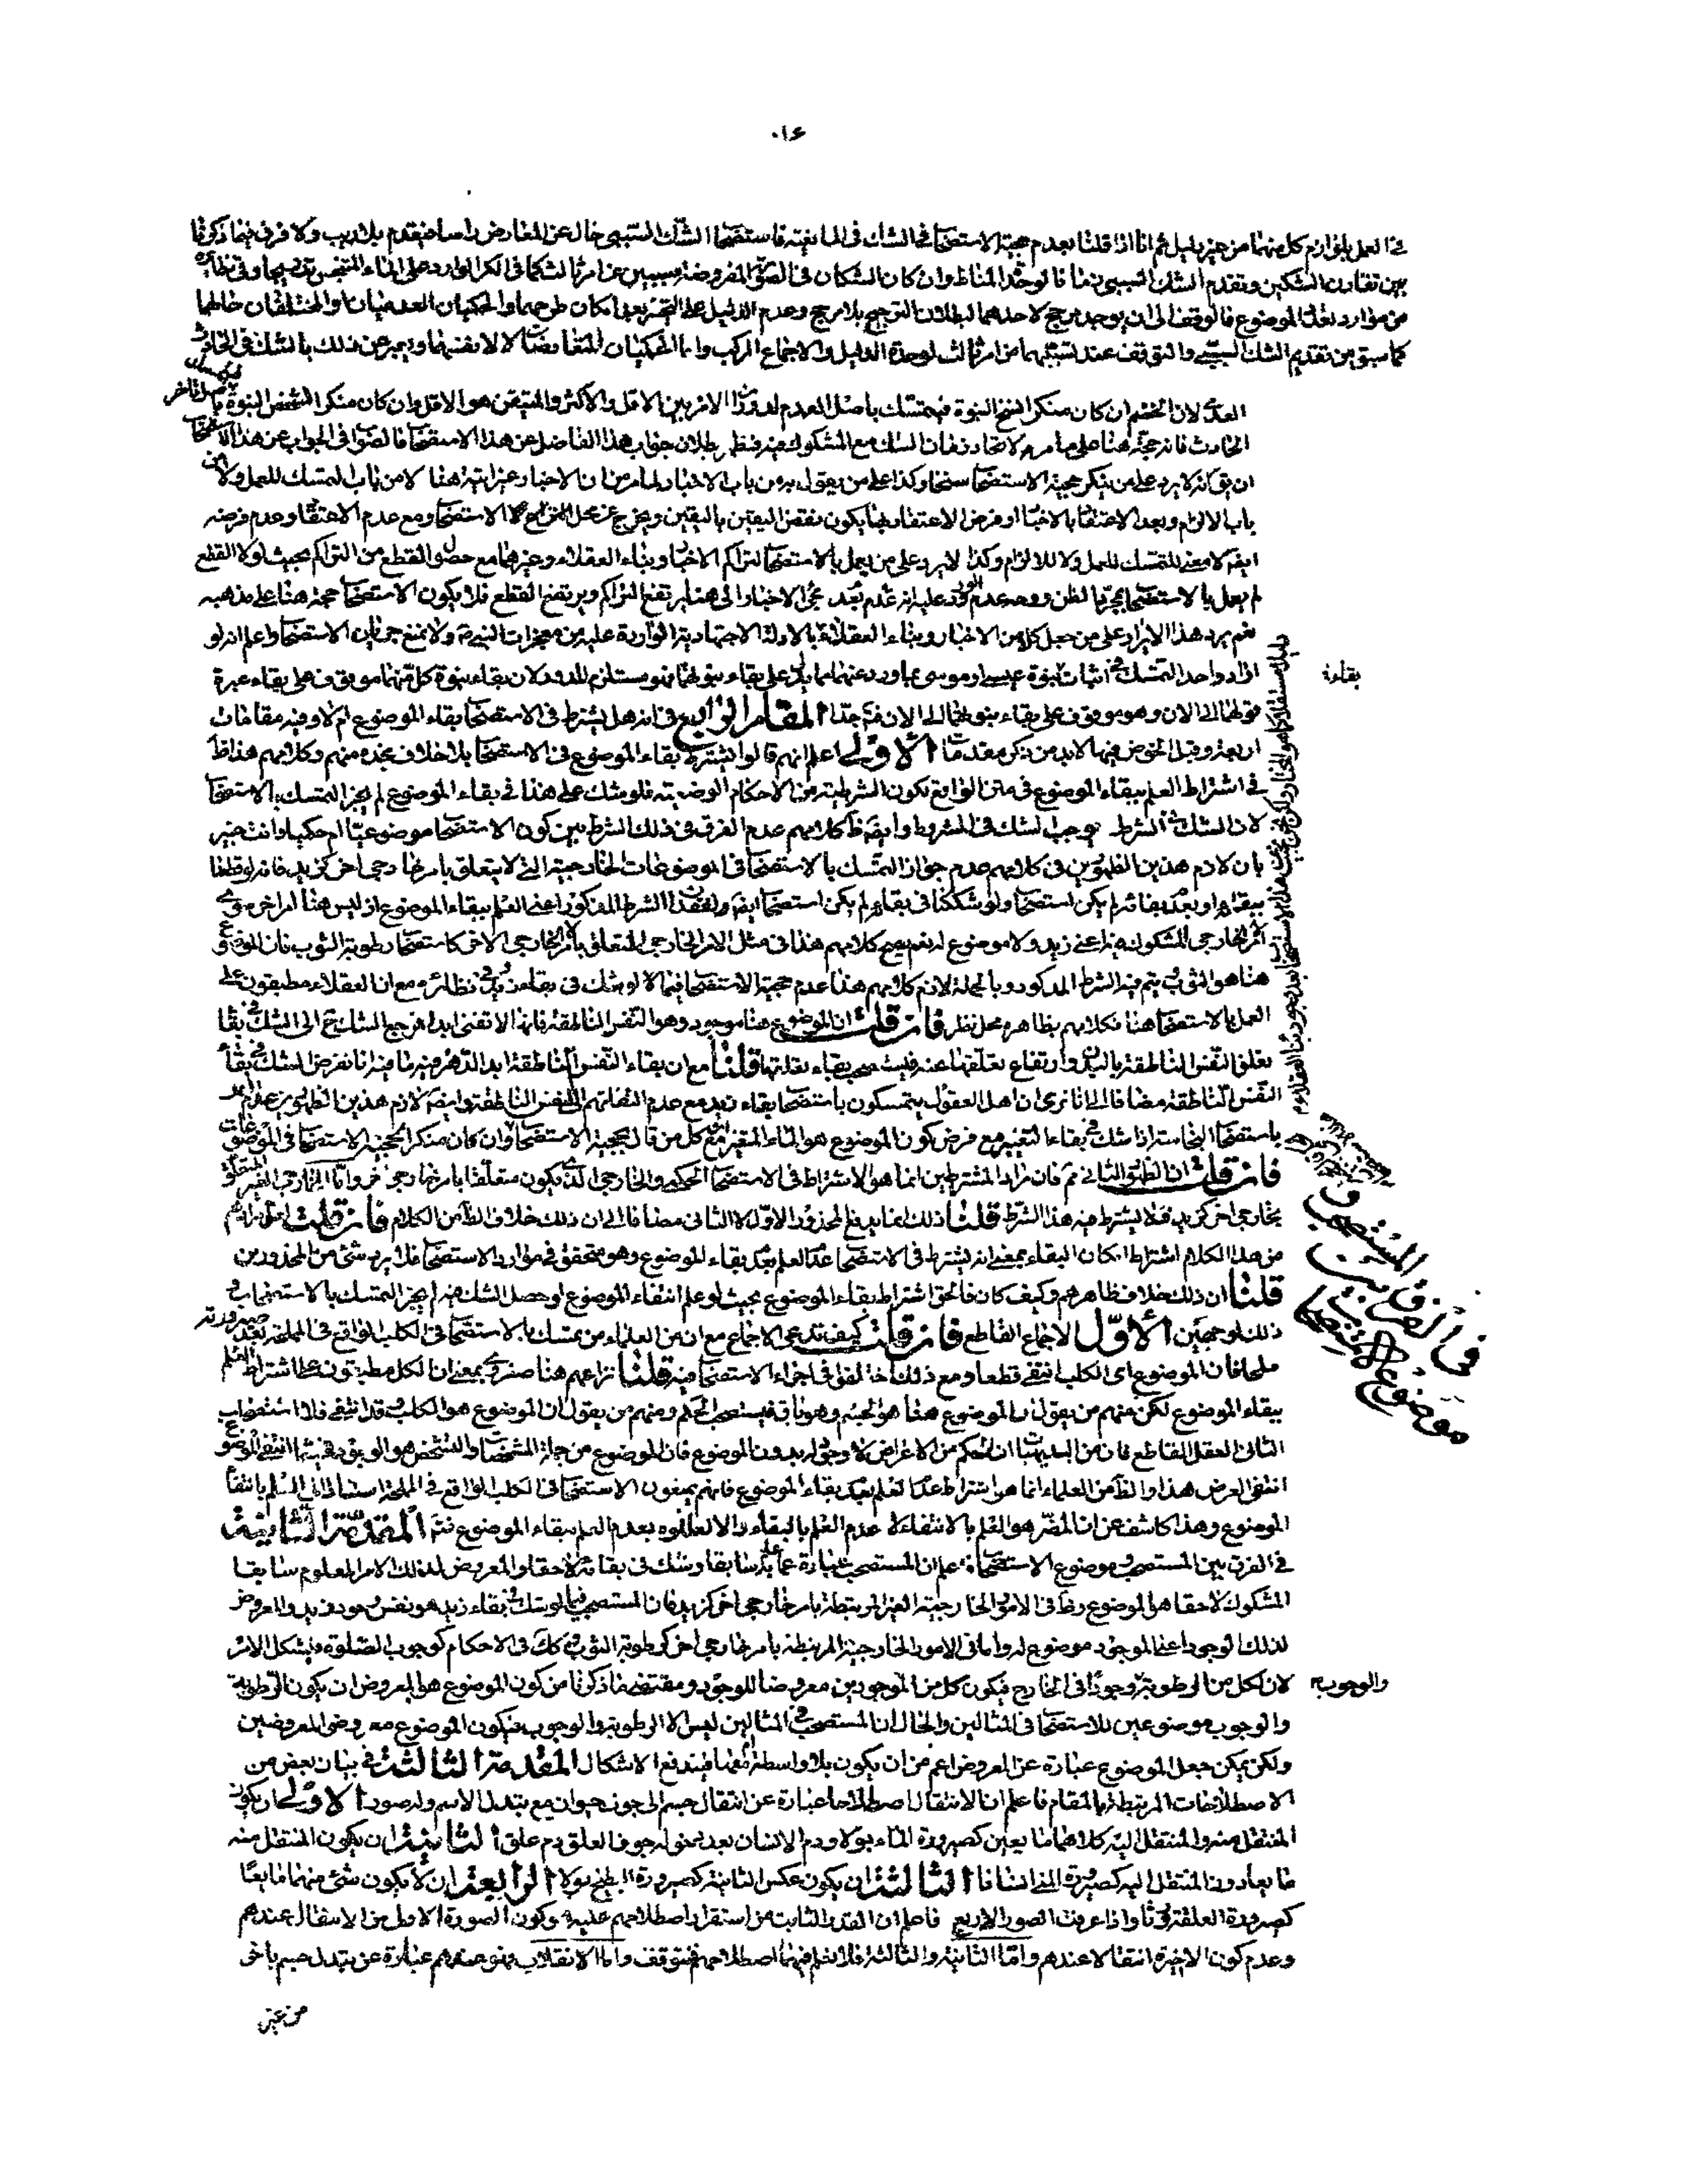 في العمل بلوازم كل منهما من غير دليل ثم انا اذا قلنا بعدم حجية الاستصحاب في الشك في المانعية فاستصحاب الشك السببي خال عن المعارض راسا فيقدم بلا ريب ولا فرق فيما ذكرنا
بين تقارن الشكين وتقدم الشك السببي زمانا لوحدة المناط وان كان الشكان في الصورة المفروضة مسببين عن امر ثالث كما في الكر الوارد على الماء المتنجس
من موارد تعدد الموضوع فالوقف الى ان يوجد مرجح لاحدهما لبطلان الترجيح بلا مرجح وعدم الدليل على التخيير بعد امكان طرحهما والحكمان العدميان او المختلفان حالهما
كما سبق من تقديم الشك السببي والتوقف عند تسببهما من امر ثالث لوحدة الدليل والاجماع المركب واما الحكمان المتعارضان لا لانفسهما ويعبر عن ذلك بالشك في الحادث
العدم لان الخصم ان كان منكر النسخ النبوة فيتمسك باصل العدم لدوران الامر بين الاقل والاكثر والمتيقن هو الاقل وان كان منكرا لشخص النبوة
الحادث فانه حجة هنا على ما مر لاتحاد زمان الشك مع المشكوك فيه فظهر بطلان جواب هذا الفاضل عن هذا الاستصحاب فالصواب في الجواب عن هذا
ان يق انه لا يرد على من ينكر حجية الاستصحاب سنخا وكذا على من يقول به من باب الاخبار لما مر من ان الاخبار غير ثابتة هنا لا من باب التمسك للعمل ولا من
باب الالزام وبعد الاعتقاد بالاخبار او فرض الاعتقاد بها يكون نقض اليقين باليقين ويخرج عن محل الاستصحاب ومع عدم الاعتقاد وعدم فرضه
ايضا لا معنى للتمسك للعمل ولا للالزام وكذا لا يرد على من يعمل بالاستصحاب لتراكم الاخبار وبناء العقلاء وغيرهما مع حصول القطع من التراكم بحيث لولا القطع
لم يعمل بالاستصحاب بمجرد الظن ووجه عدم الورود عليه انه عدم بعد مجئ الاخبار الى هنا يرتفع التراكم ويرتفع القطع فلا يكون الاستصحاب حجة هنا على مذهبه
نعم يرد هذا الايراد على من جعل كلا من الاخبار وبناء العقلاء بالادلة الاجتهادية الواردة عليه من معجزات النبي ولا يمنع جريان الاستصحاب واعلم انه لو
اراد واحد التمسك في اثبات نبوة عيسى او موسى بما ورد عنهما مما يدل على بقاء نبوتهما فهو مستلزم للدور لان بقاء نبوة كل منهما موقوف على بقاء عبرة
بقاءة
قولهما الى الان وهو موقوف على بقاء نبوتهما الى الان فتم جدا المقام الرابع في انه هل يشترط في الاستصحاب بقاء الموضوع ام لا وفيه مقامات
اربعة وقبل الخوض فيها لابد من ذكر مقدمات الاولى اعلم انهم قالوا يشترط بقاء الموضوع في الاستصحاب بلا خلاف نجده منهم وكلامهم هذا ظ
في اشتراط العلم ببقاء الموضوع في متن الواقع لكون الشرطية من الاحكام الوضعية فلو شك على هذا في بقاء الموضوع لم يجز التمسك بالاستصحاب
لان الشك في الشرط يوجب الشك في المشروط وايضا ظ كلامهم عدم الفرق في ذلك الشرط بين كون الاستصحاب موضوعيا ام حكميا وانت خبير
بان لازم هذين الظهورين في كلامهم عدم جواز التمسك بالاستصحاب في الموضوعات الخارجية التي لا يتعلق بامر خارجي اخر كزيد فانه لو قطعنا
ببقائه او بعدم بقائه لم يكن استصحاب ولو شككنا في بقائه لم يكن استصحاب ايضا ولفقد الشرط المذكور اعني العلم ببقاء الموضوع اذ ليس هنا امر اخر سوى
الامر الخارجي المشكوك فيه اعني زيد ولا موضوع له نعم يصح كلامهم هذا في مثل الامر الخارجي المتعلق بالامر الخارجي الاخر كاستصحاب رطوبة الثوب فان الموضوع
هنا هو الثوب يتم فيه الشرط المذكور وبالجملة لازم كلامهم هذا عدم حجية الاستصحاب فيما لو شك في بقاء زيد وفي نظائره مع ان العقلاء مطبقون على
العمل بالاستصحاب هنا فكلامهم بظاهره محل نظر فان قلت ان الموضوع هنا موجود وهو النفس الناطقة فانها لا تفنى ابدا فرجع الشك ح الى الشك في بقاء
تعلق النفس الناطقة بالبدن وارتفاع تعلقها عنه فيستصحب بقاء تعلقها قلنا مع ان بقاء النفس الناطقة ابد الدهر فيه ما فيه انا نفرض الشك في بقاء
النفس الناطقة مضافا الى انا نرى ان اهل العقول يتمسكون باستصحاب بقاء زيد مع عدم التفاتهم الى النفس الناطقة وايضا لازم هذين الظهورين عدم
باستصحاب النجاسة اذا شك في بقاء التغير مع فرض كون الموضوع هو الماء المتغير مع كل من قال بحجية الاستصحاب وان كان منكرا لحجية الاستصحاب في الموضوعات
فان قلت ان الظهور الثاني تم فان مراد المشترطين انما هو الاشتراط في الاستصحاب الحكمي والخارجي الذي يكون متعلقا بامر خارجي اخر واما الخارجي الغير المتعلق
بخارجي اخر كزيد فلا يشترط فيه هذا الشرط قلنا ذلك انما يدفع المحذور الاول لا الثاني مضافا الى ان ذلك خلاف الظ من الكلام فان قلت لعل مرادهم
من هذا الكلام اشتراط امكان البقاء بمعنى انه يشترط في الاستصحاب عدم العلم بعدم بقاء الموضوع وهو متحقق في موارد الاستصحاب فلا يرد شئ من المحذورين
قلنا ان ذلك خلاف ظاهرهم وكيف كان فالحق اشتراط بقاء الموضوع بحيث لو علم انتفاء الموضوع او حصل الشك فيه لم يجز التمسك بالاستصحاب و
ذلك لوجهين الاول الاجماع القاطع فان قلت كيف تدعي الاجماع مع ان من العلماء من تمسك بالاستصحاب في الكلب الواقع في المملحة بعد صيرورته
ملحا فان الموضوع اى الكلب انتفى قطعا ومع ذلك اختلفوا في اجراء الاستصحاب فيه قلنا نزاعهم هنا صغروي بمعنى ان الكل مطبقون على اشتراط العلم
ببقاء الموضوع لكن منهم من يقول ان الموضوع هنا هو الجسم وهو باق فيستصحب الحكم ومنهم من يقول ان الموضوع هو الكلب وقد انتفى فلا استصحاب
الثاني العقل القاطع فان من البديهيات ان الحكم من الاعراض لا وجود له بدون الموضوع فان الموضوع من جملة المشخصات والتشخص هو الوجود فحيثما انتفى الموضوع
انتفى العرض هذا والظ من العلماء انما هو اشتراط عدم العلم بعدم بقاء الموضوع فانهم يمنعون الاستصحاب في الكلب الواقع في المملحة استنادا الى العلم بانتفاء
الموضوع وهذا كاشف عن ان المضر هو العلم بالانتفاء لا عدم العلم بالبقاء والا لعللوه بعدم العلم ببقاء الموضوع فتم المقدمة الثانية
في الفرق بين المستصحب وموضوع الاستصحاب فاعلم ان المستصحب عبارة عما علم به سابقا وشك في بقائه لاحقا والمعروض لذلك الامر المعلوم سابقا
المشكوك لاحقا هو الموضوع وظ في الامور الخارجية الغير المرتبطة بامر خارجي اخر كزيد فان المستصحب فيما لو شك في بقاء زيد هو نفس وجود زيد والمعروض
لذلك الوجود اعني الموجود موضوع له واما في الامور الخارجية المرتبطة بامر خارجي اخر كرطوبة الثوب وكذا في الاحكام كوجوب الصلوة فيشكل الامر
لان لكل من الرطوبة وجودا في الخارج فيكون كل من الموجودين معروضا للوجود ومقتضى ما ذكرنا من كون الموضوع هو المعروض ان يكون الرطوبة
والوجوب
والوجوب موضوعين للاستصحاب في المثالين والحال ان المستصحب في المثالين ليس الا الرطوبة والوجوب فيكون الموضوع معروض المعروضين
ولكن يمكن جعل الموضوع عبارة عن المعروض اعم من ان يكون بلا واسطة او معها فيندفع الاشكال المقدمة الثالثة في بيان بعض من
الاصطلاحات المرتبطة بالمقام فاعلم ان الانتقال اصطلاحا عبارة عن انتقال جسم الى جوف حيوان مع تبدل الاسم وله صور الاولى ان يكون
المنتقل منه والمنتقل اليه كلاهما مايعين كصيرورة الماء بولا ودم الانسان بعد دخوله جوف العلق دم علق الثانية ان يكون المنتقل منه
مايعا دون المنتقل اليه كصيرورة المني انسانا الثالثة ان يكون عكس الثانية كصيرورة البطيخ بولا الرابعة ان لا يكون شئ منهما مايعا
كصيرورة العلقة واذا عرفت الصور الاربع فاعلم ان القدر الثابت من استقراء اصطلاحهم عليه وكون الصورة الاولى من الانتقال عندهم
وعدم كون الاخيرة انتقالا عندهم واما الثانية والثالثة فلا نعلم فيهما اصطلاحهم فنتوقف واما الانقلاب فهو عندهم عبارة عن تبدل جسم باخر
في الفرق بين المستصحب و
موضوع الاستصحاب
من غير